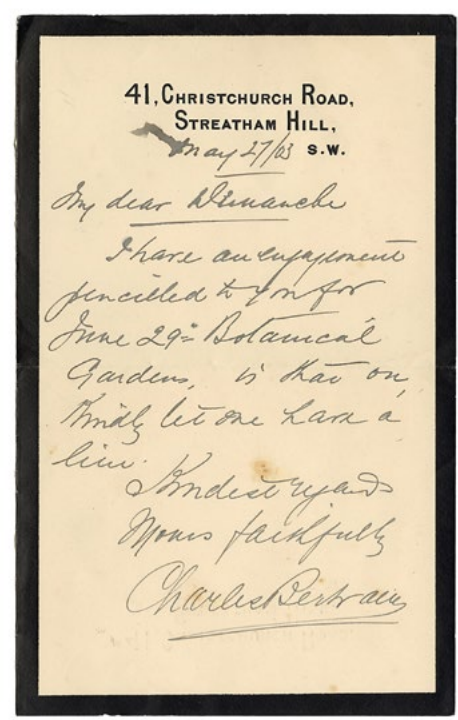 41, CHRISTCHURCH ROAD,
STREATHAM HILL,
May 27/03 S.W.
My dear Dimanche
I have an engagement
pencilled to you for
June 29th Botanical
Gardens, is that on,
Kindly let me have a
line.
Kindest regards
Yours faithfully
Charles Bertram